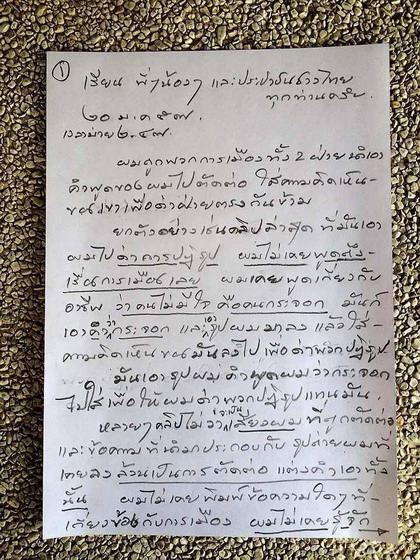 ①
เรียน พี่ๆน้องๆ และประชาชนชาวไทย
ทุกท่านครับ.
๒๐ ม.ค ๕๗.
เวลาบ่าย ๒.๔๗.
ผมถูกพวกการเมืองทั้ง 2 ฝ่าย นำเอา
คำพูดของผมไปตัดต่อ ใส่ความคิดเห็น-
ของเขาเพื่อด่าฝ่ายตรงกันข้าม
ยกตัวอย่างเช่นคลิปล่าสุด ที่มันเอา
ผมไปด่าการปฏิรูป ผมไม่เคยพูดถึง-
เรื่องการเมืองเลย ผมเคยพูดเกี่ยวกับ
อาชีพ ว่าคนไม่มีใจ คือคนกระจอก มันก็
เอาคำว่ากระจอก และเอารูปผมมาลง แล้วใส่-
ความคิดเห็นของมันลงไป เพื่อด่าพวกปฏิรูป
มันเอารูปผม คำพูดผมว่ากระจอก
ไปใส่เพื่อให้ผมด่าพวกปฏิรูปแทนมัน.
หลายๆคลิปไม่ว่าจะเป็นเสียงผมที่ถูกตัดต่อ
และข้อความที่นำมาประกอบกับ รูปถ่ายผมที่
เคยลงล้วนเป็นการตัดต่อ แต่งคำเอาทั้ง
นั้น ผมไม่เคยพิมพ์ข้อความใดๆที่-
เกี่ยวข้องกับการเมือง ผมไม่เคยรู้จัก